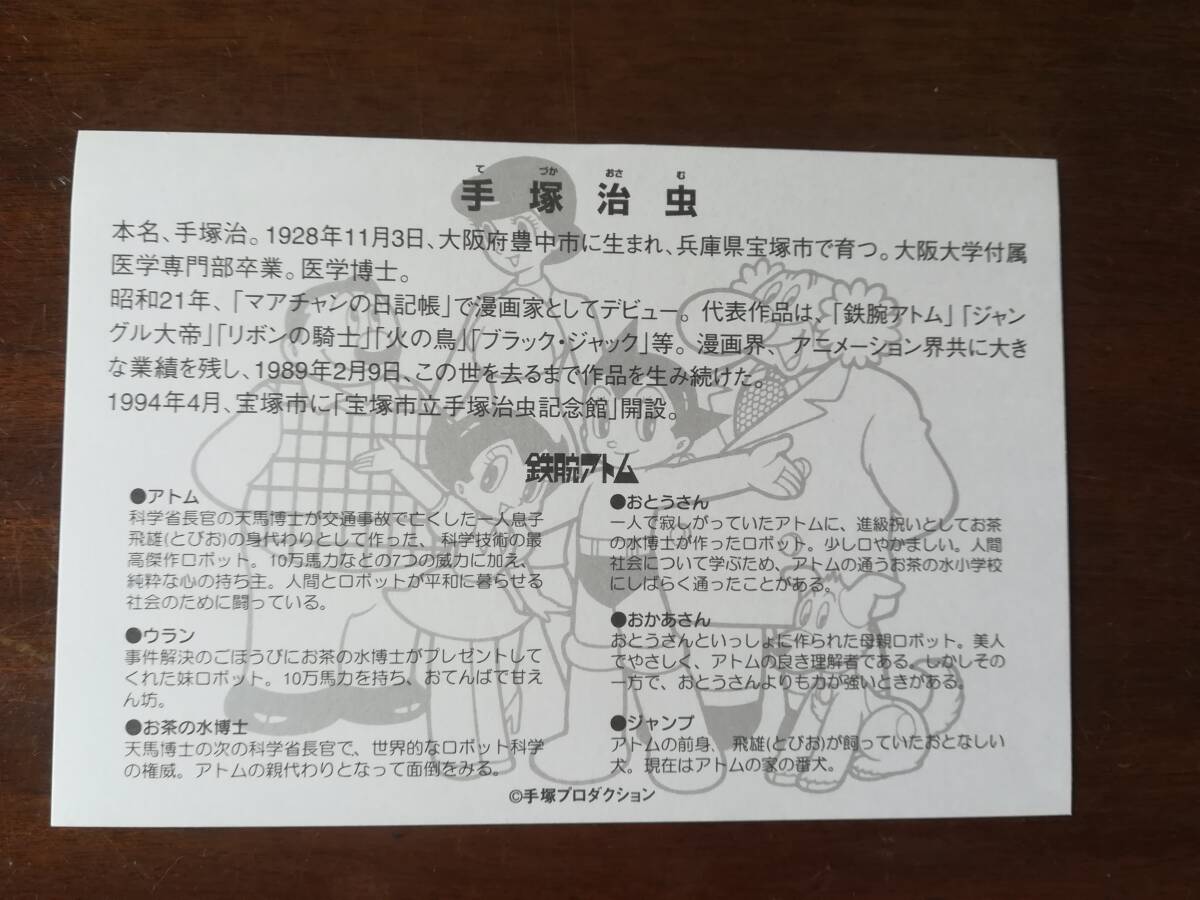 て づか おさ む
手塚治虫
本名、手塚治。1928年11月3日、大阪府豊中市に生まれ、兵庫県宝塚市で育つ。大阪大学付属
医学専門部卒業。医学博士。
昭和21年、「マアチャンの日記帳」で漫画家としてデビュー。代表作品は、「鉄腕アトム」「ジャン
グル大帝」「リボンの騎士」「火の鳥」「ブラック・ジャック」等。漫画界、アニメーション界共に大き
な業績を残し、1989年2月9日、この世を去るまで作品を生み続けた。
1994年4月、宝塚市に「宝塚市立手塚治虫記念館」開設。
鉄腕アトム
●アトム
科学省長官の天馬博士が交通事故で亡くした一人息子
飛雄(とびお)の身代わりとして作った、科学技術の最
高傑作ロボット。10万馬力などの7つの威力に加え、
純粋な心の持ち主。人間とロボットが平和に暮らせる
社会のために闘っている。
●ウラン
事件解決のごほうびにお茶の水博士がプレゼントして
くれた妹ロボット。10万馬力を持ち、おてんばで甘え
ん坊。
●お茶の水博士
天馬博士の次の科学省長官で、世界的なロボット科学
の権威。アトムの親代わりとなって面倒をみる。
●おとうさん
一人で寂しがっていたアトムに、進級祝いとしてお茶
の水博士が作ったロボット。少し口やかましい。人間
社会について学ぶため、アトムの通うお茶の水小学校
にしばらく通ったことがある。
●おかあさん
おとうさんといっしょに作られた母親ロボット。美人
でやさしく、アトムの良き理解者である。しかしその
一方で、おとうさんよりも力が強いときがある。
●ジャンプ
アトムの前身、飛雄(とびお)が飼っていたおとなしい
犬。現在はアトムの家の番犬。
©手塚プロダクション